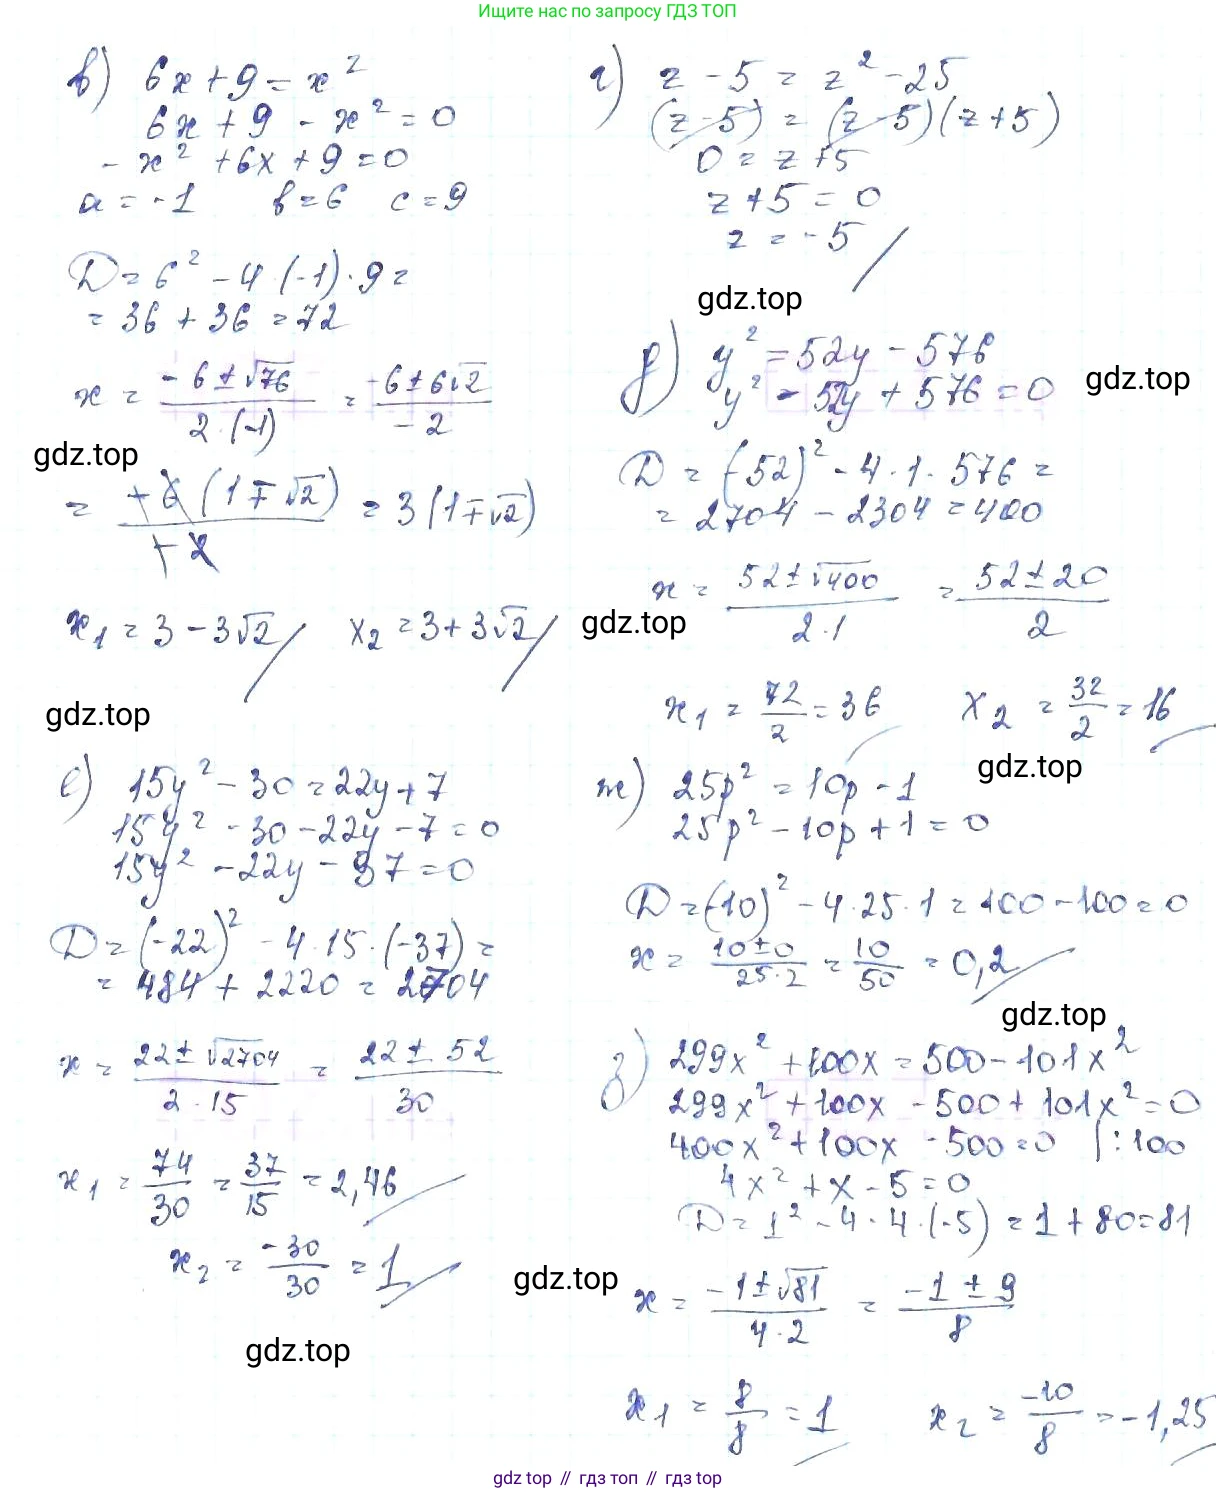 Ищите нас по запросу ГДЗ ТОП
в) 6x + 9 = x²
6x + 9 - x² = 0
- x² + 6x + 9 = 0
a = -1 b = 6 c = 9
D = 6² - 4·(-1)·9 =
= 36 + 36 = 72
x = (-6 ± √76)/(2·(-1)) = (-6 ± 6√2)/(-2)
gdz.top
= -6(1 ∓ √2)/(-2) = 3(1 ∓ √2)
x₁ = 3 - 3√2 x₂ = 3 + 3√2
gdz.top
г) z - 5 = z² - 25
(z - 5) = (z - 5)(z + 5)
0 = z + 5
z + 5 = 0
z = -5
gdz.top
д) y² = 52y - 576
y² - 52y + 576 = 0
gdz.top
D = (-52)² - 4·1·576 =
= 2704 - 2304 = 400
x = (52 ± √400)/(2·1) = (52 ± 20)/2
gdz.top
x₁ = 72/2 = 36 x₂ = 32/2 = 16
gdz.top
е) 15y² - 30 = 22y + 7
15y² - 30 - 22y - 7 = 0
15y² - 22y - 37 = 0
D = (-22)² - 4·15·(-37) =
= 484 + 2220 = 2704
x = (22 ± √2704)/(2·15) = (22 ± 52)/30
x₁ = 74/30 = 37/15 = 2,46
x₂ = -30/30 = 1
gdz.top
ж) 25p² = 10p - 1
25p² - 10p + 1 = 0
D = (-10)² - 4·25·1 = 100 - 100 = 0
x = (10 ± 0)/(25·2) = 10/50 = 0,2
gdz.top
з) 299x² + 100x = 500 - 101x²
299x² + 100x - 500 + 101x² = 0
400x² + 100x - 500 = 0 | : 100
4x² + x - 5 = 0
D = 1² - 4·4·(-5) = 1 + 80 = 81
gdz.top
x = (-1 ± √81)/(4·2) = (-1 ± 9)/8
x₁ = 8/8 = 1 x₂ = -10/8 = -1,25
gdz.top // гдз топ // гдз top